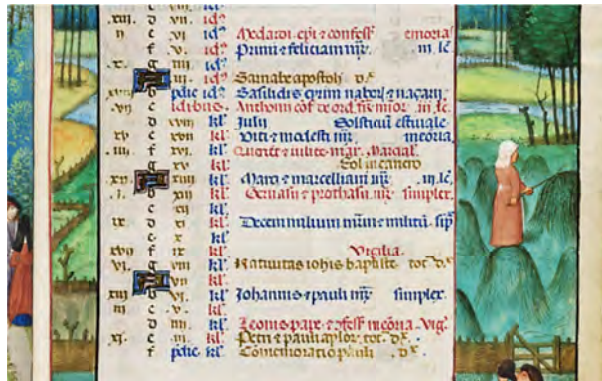 .xiii. d vii. id'
ii e vi. id' Medardi. epi et confess memoria
f v. id' Primi et feliciani mr. iii. lc.
x. g iiii. id'
iii. id' Barnabe apostoli d.x.
xviii b pdie id' Basilidis quirini naboris et nazarii
vii c idibus. Anthonii cōf de ord. fr̄m minor. iii. lc.
d xviii kl' Julii Solsticiū estiuale
xv e xvii kl' Viti et modesti mr. meōria.
iiii. f xvi. kl' Quirici et iulite. mar. Marcial.
g xv kl' Sol in cancro
xii xiiii kl' Marci et marcelliani mr. iii. lc.
.i. b xiii kl' Geruasii et prothasii mr. simplex.
c xii kl'
ix d xi. kl' Decem milium mrm et militū. sip
e x kl'
xvii f ix kl' Vigilia.
vi. g viii kl' Natiuitas iohis baptiste. tot. d.x.
vii kl'
xiiii b vi. kl' Johannis et pauli mr. simplex.
iii c v. kl'
d iiii. kl' Leonis pape. et cōfess meōria. Vig.
xi. e iii kl' Petri et pauli aplor. tot. dx.
f pdie. kl' Comemoratio pauli d.x.